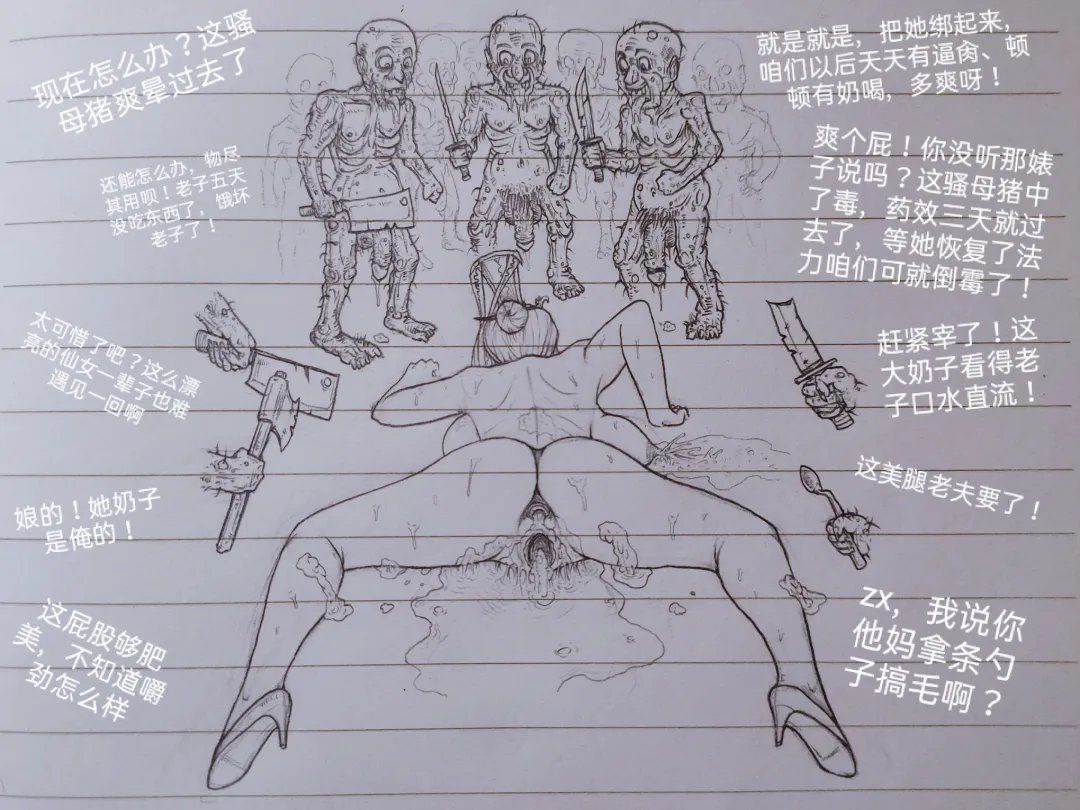 现在怎么办？这骚
母猪爽晕过去了
还能怎么办，物尽
其用呗！老子五天
没吃东西了，饿坏
老子了！
太可惜了吧？这么漂
亮的仙女一辈子也难
遇见一回啊
娘的！她奶子
是俺的！
这屁股够肥
美，不知道嚼
劲怎么样
就是就是，把她绑起来，
咱们以后天天有逼肏、顿
顿有奶喝，多爽呀！
爽个屁！你没听那婊
子说吗？这骚母猪中
了毒，药效三天就过
去了，等她恢复了法
力咱们可就倒霉了！
赶紧宰了！这
大奶子看得老
子口水直流！
这美腿老夫要了！
zx，我说你
他妈拿条勺
子搞毛啊？